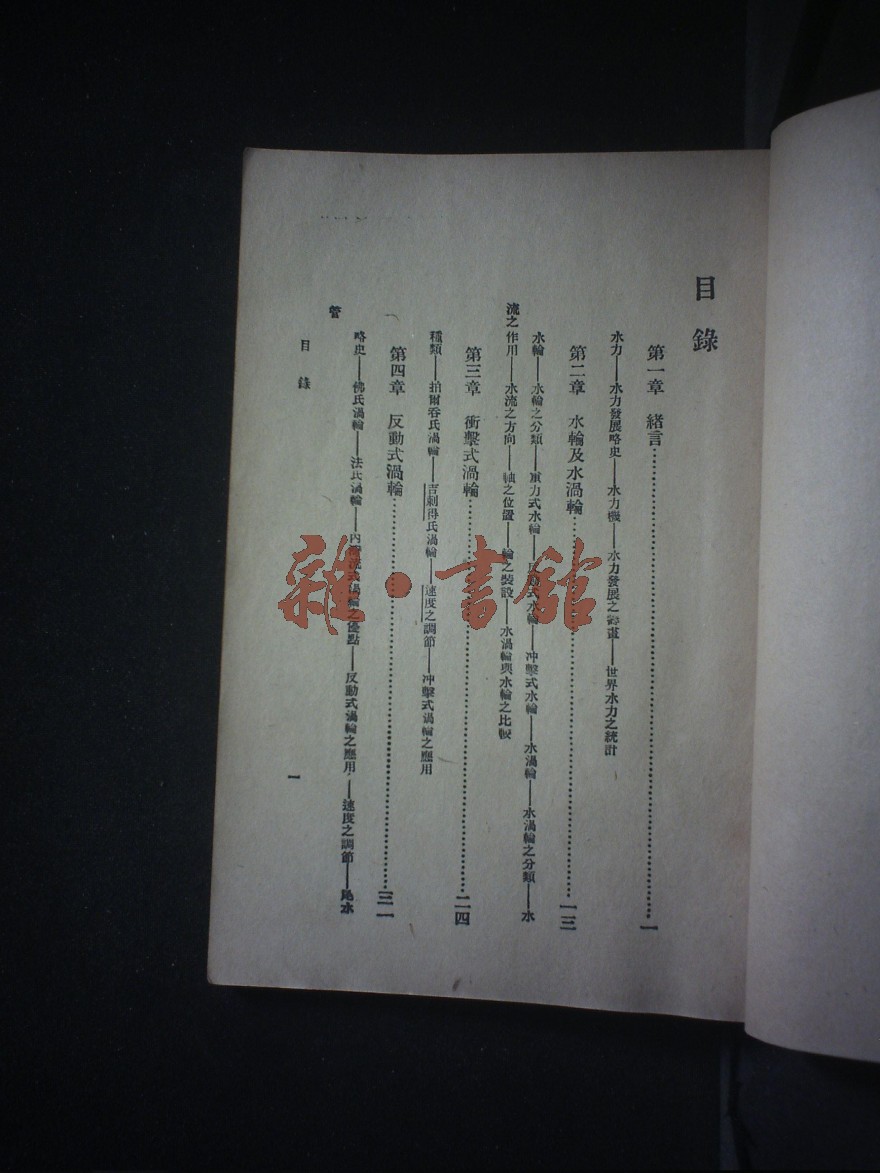 目錄
第一章 緒言……一
水力——水力發展略史——水力機——水力發展之籌畫——世界水力之統計
第二章 水輪及水渦輪……一三
水輪——水輪之分類——重力式水輪——反動式水輪——冲擊式水輪——水渦輪——水渦輪之分類——水
流之作用——水流之方向——軸之位置——輪之裝設——水渦輪與水輪之比較
第三章 衝擊式渦輪……二四
種類——拍爾吞氏渦輪——吉剌得氏渦輪——速度之調節——冲擊式渦輪之應用
第四章 反動式渦輪……三一
略史——佛氏渦輪——法氏渦輪——內 流式渦輪之優點——反動式渦輪之應用——速度之調節——尾水
管
目錄
一
雜·書館